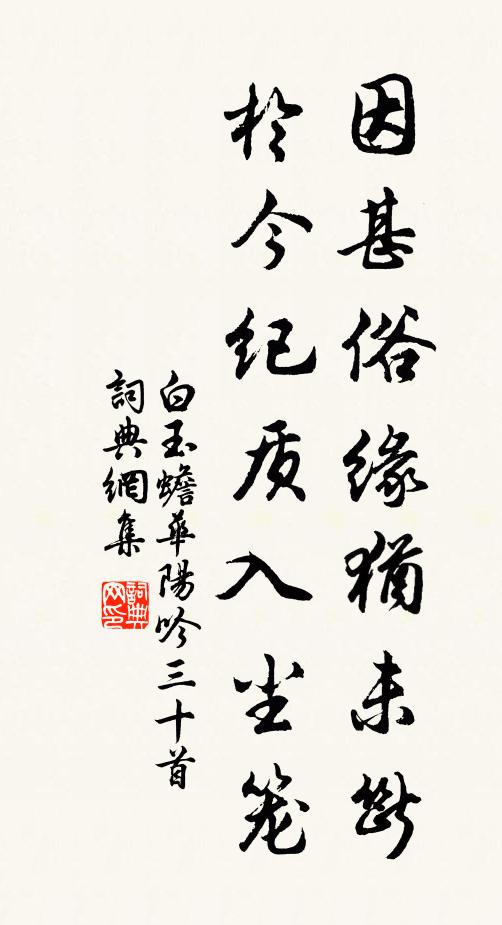 因甚俗缘猶未断
於今纪质入尘笼
白玉蟾華陽吟三十首
詞典網集
詞典
网印